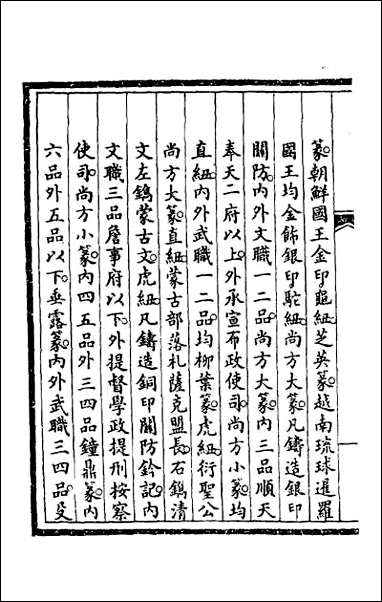 篆朝鮮國王金印龜紐芝英篆越南琉球暹羅
國王均金飾銀印駝紐尚方大篆凡鑄造銀印
關防內外文職一二品尚方大篆內三品順天
奉天二府以上外承宣布政使司尚方小篆均
直紐內外武職一二品均柳葉篆虎紐衍聖公
尚方大篆直紐蒙古部落札薩克盟長右鐫清
文左鐫蒙古文虎紐凡鑄造銅印關防鈐記內
文職三品詹事府以下外提督學政提刑按察
使司尚方小篆內四五品外三四品鐘鼎篆內
六品外五品以下垂露篆內外武職三四品殳